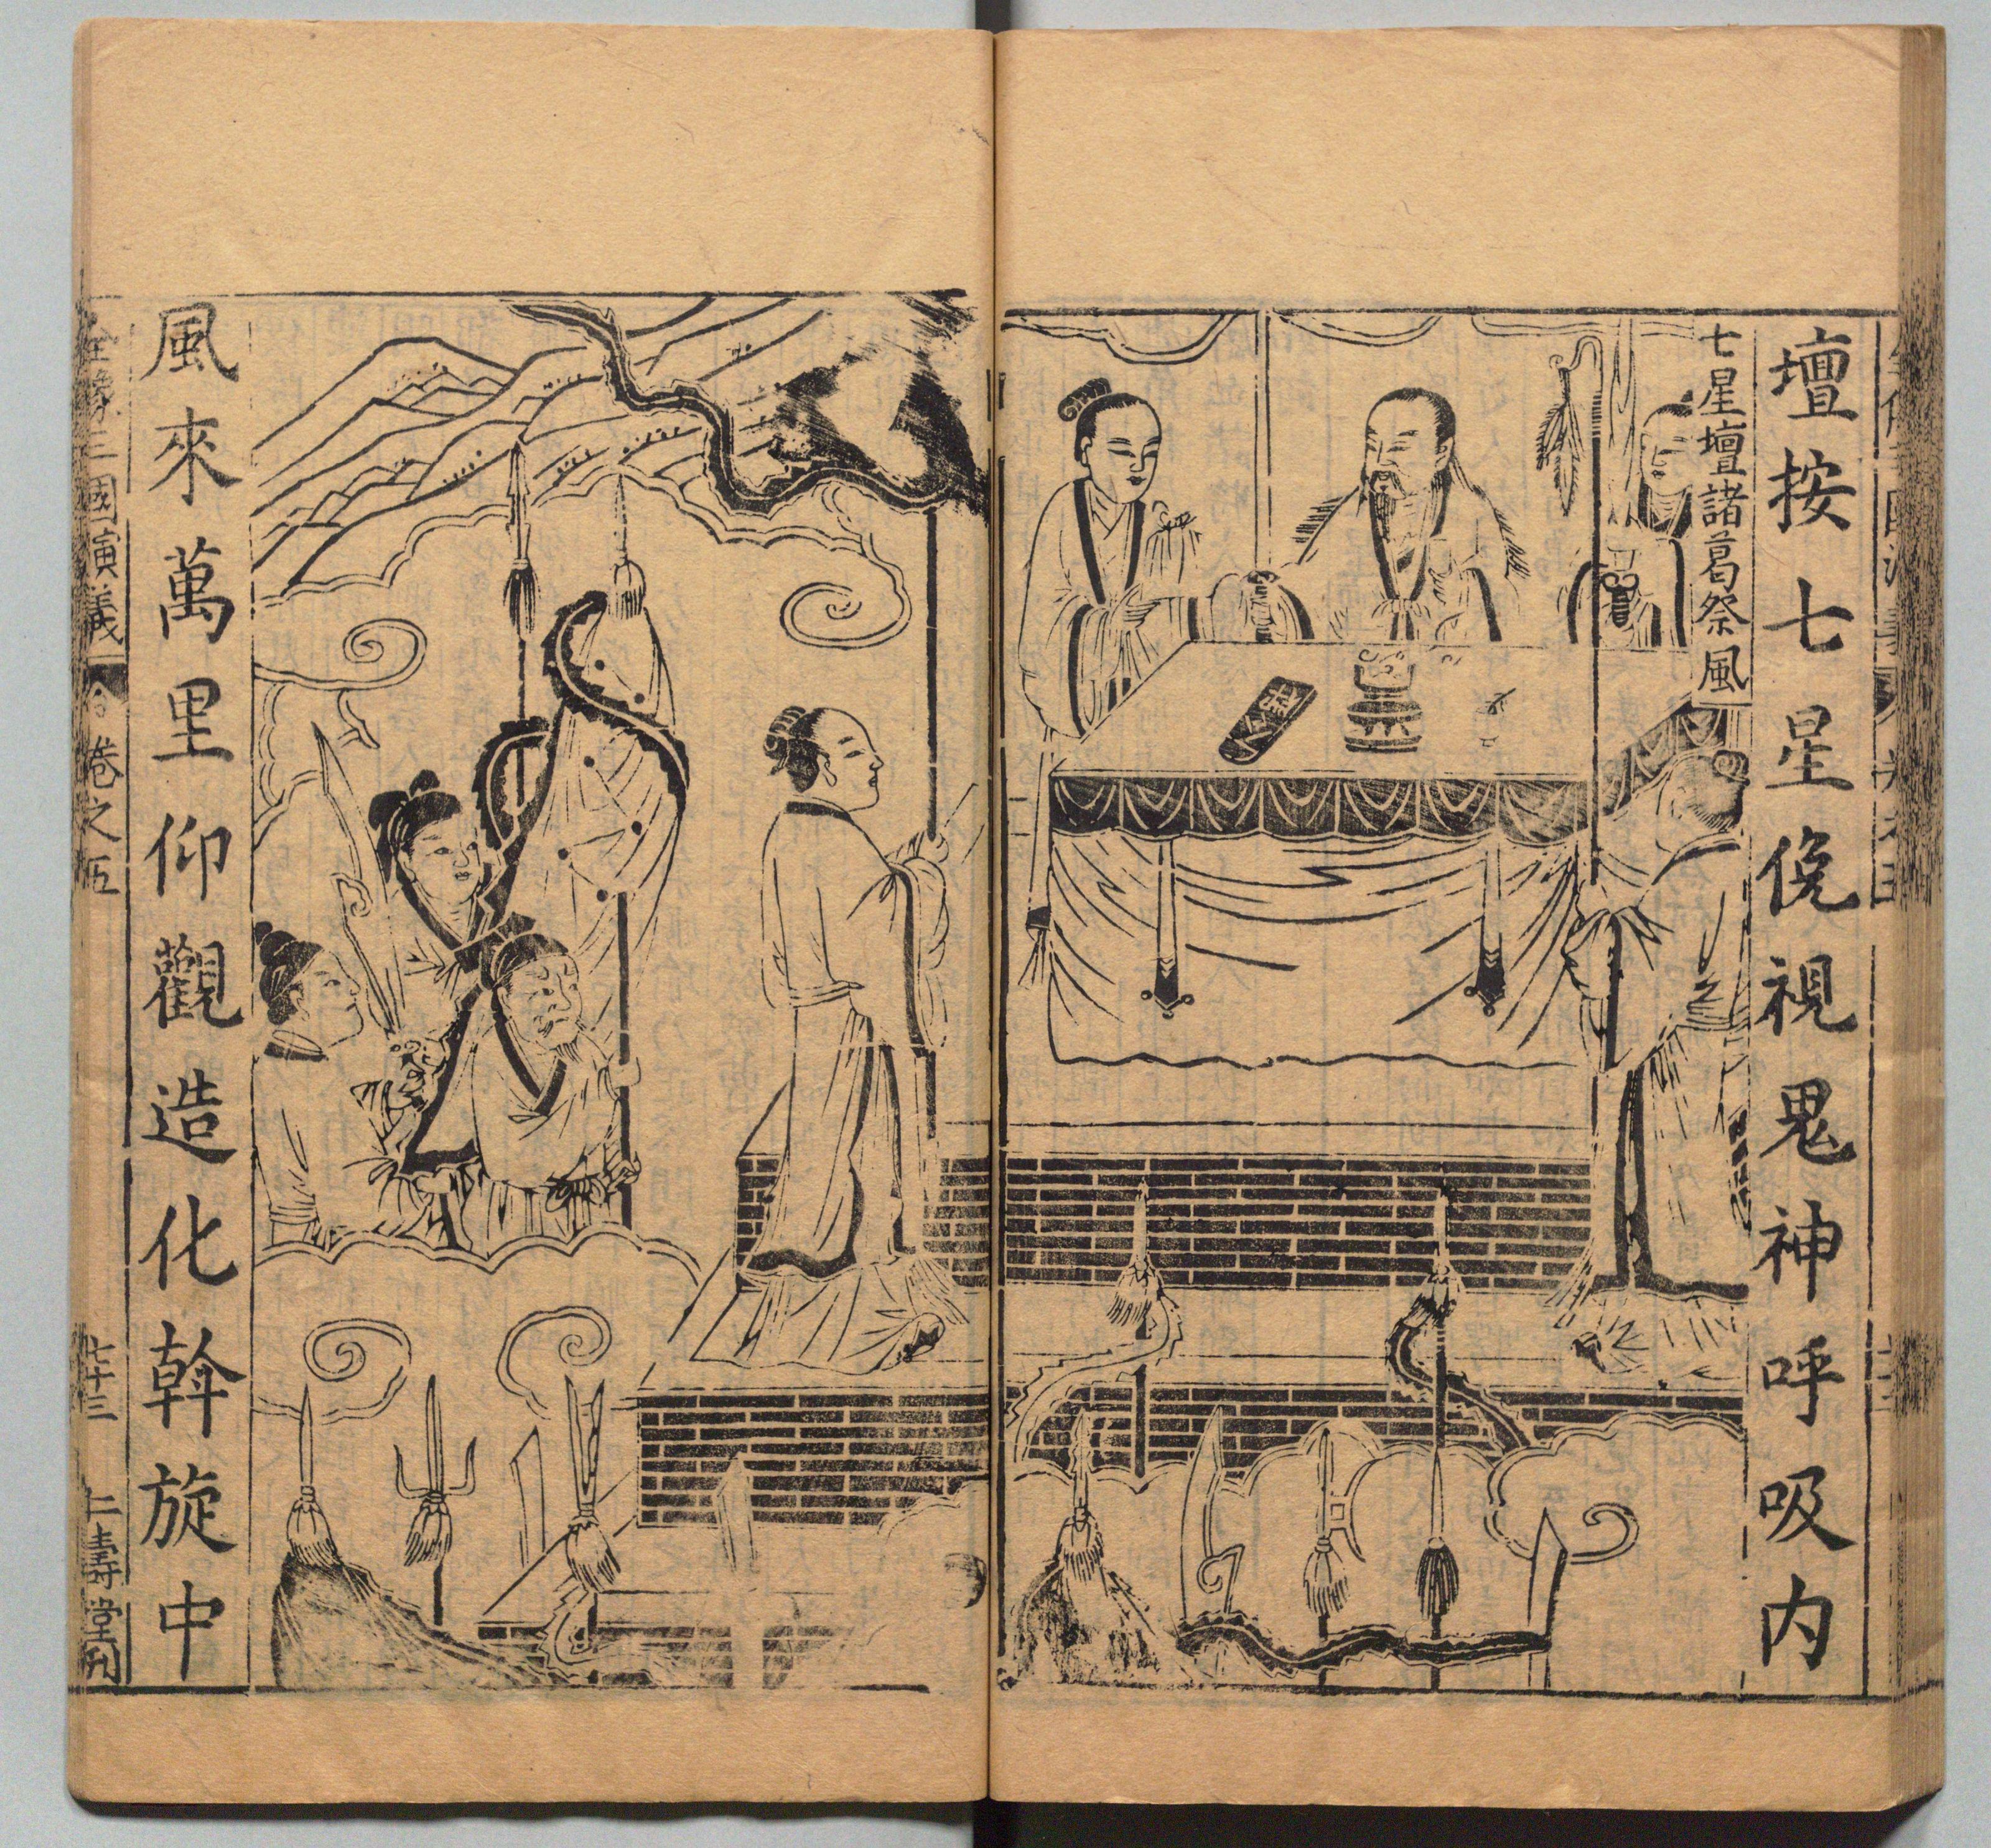 壇按七星俛視鬼神呼吸内
七星壇諸葛祭風
風來萬里仰觀造化斡旋中
全像三國演義 卷之五 七十三 仁壽堂刊